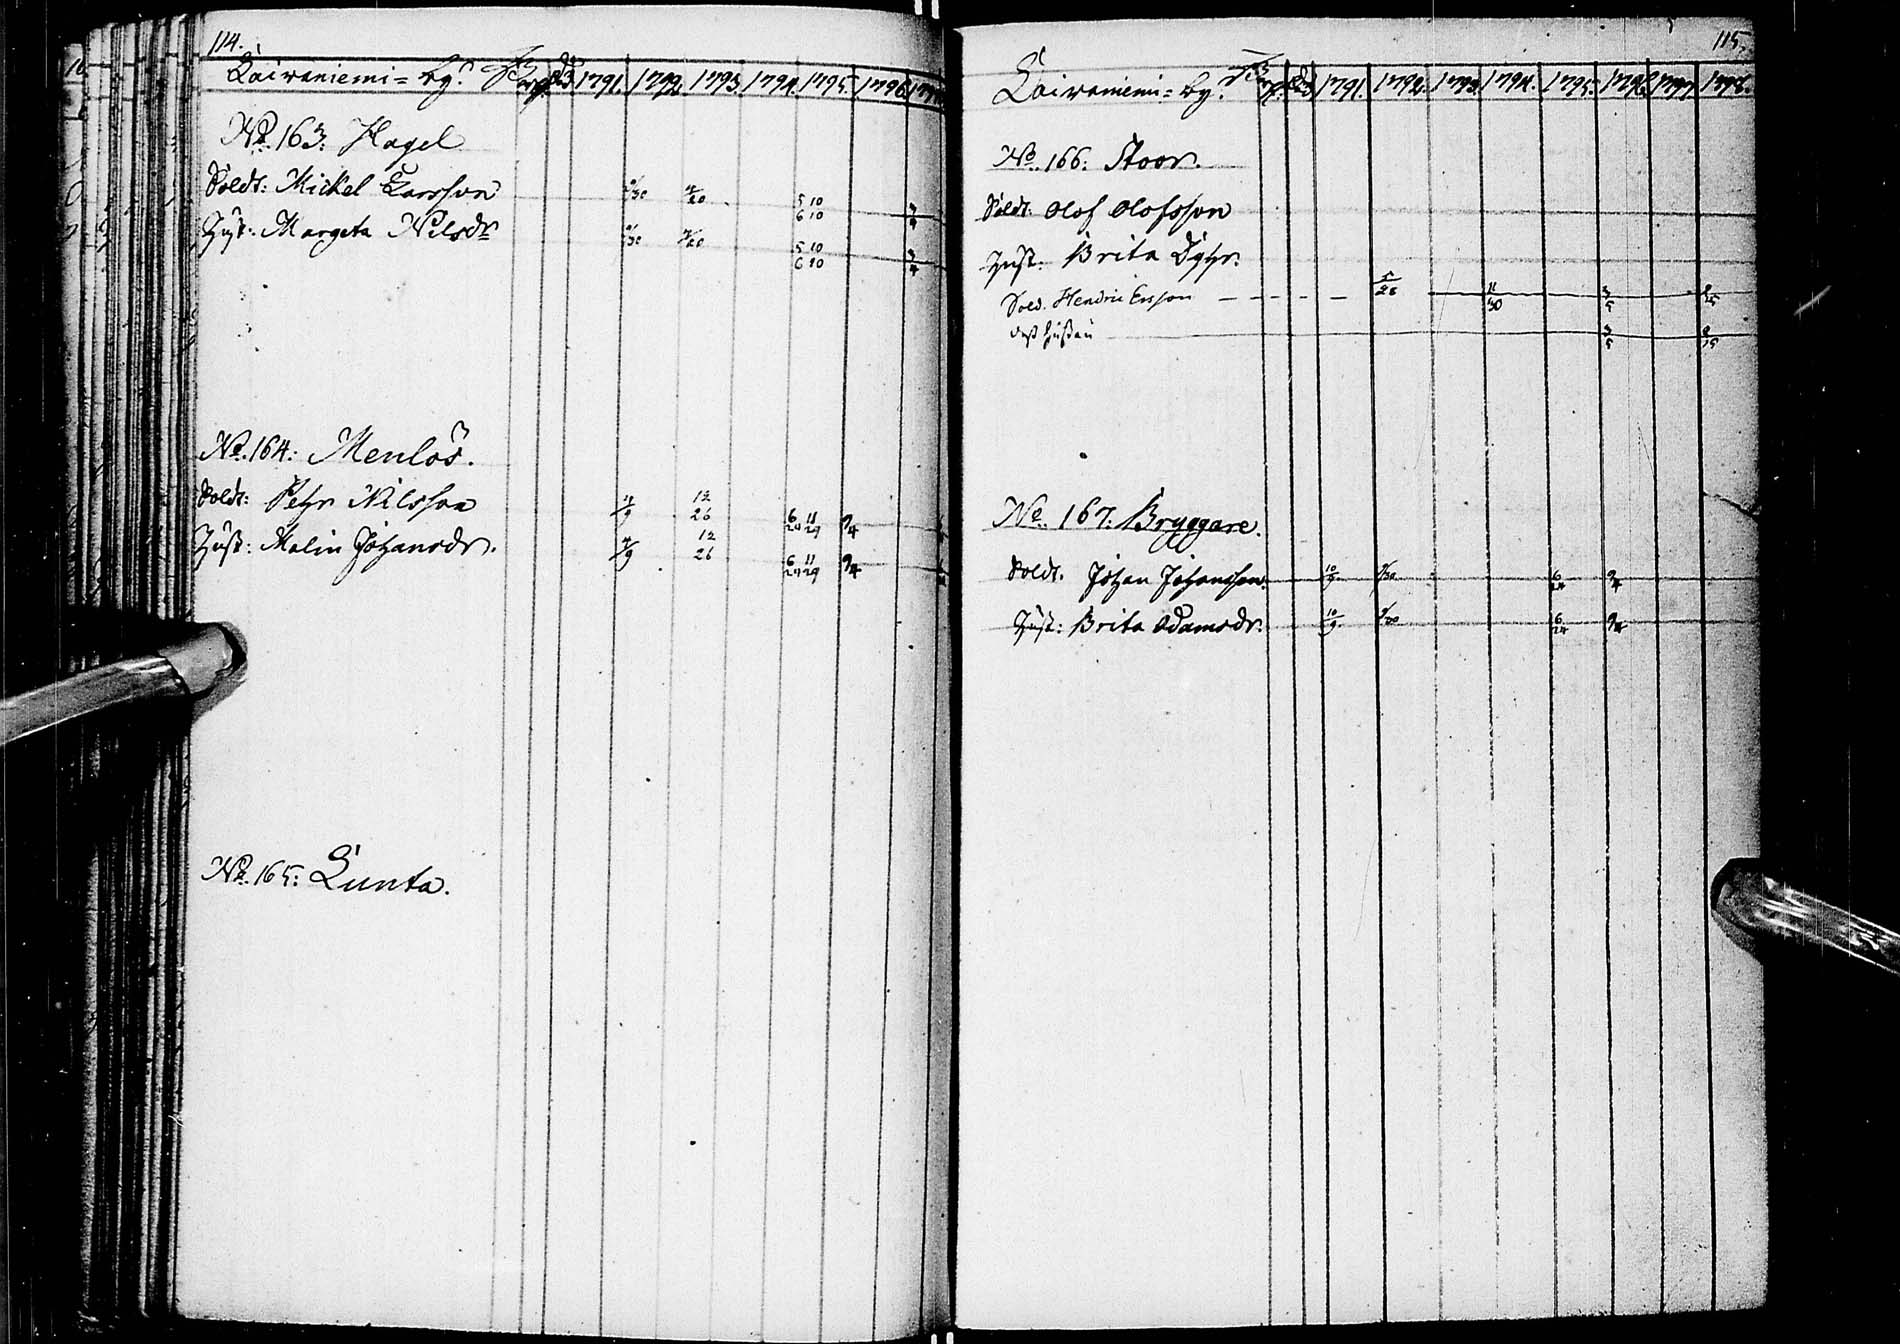 114.
Laivaniemi= by. 1791. 1792. 1793. 1794. 1795. 1796. 179
No. 163: Hagel
Soldt: Mickel Larsson 9/30 4/20 5 10
6 10
Hust: Margeta Nilsdr 9/30 4/20 5 10
6 10
No. 164: Menlös.
Soldt: Petr Nilsson 4/9 12/26 6/24 11/29 9/4
Hust: Malin Johansdr. 4/9 12/26 6/24 11/29 9/4
No. 165: Lunta.
115.
Laivaniemi= by. 1791. 1792. 1793. 1794. 1795. 1796. 1797. 1798.
No. 166: Stoor.
Soldt. Olof Olofsson
Hust: Brita
Sold. Hendric Ersson 5/28 11/30 3/5
dess hustru 3/5
No. 167: Bryggare.
Soldt. Johan Johansson. 10/9 9/30 6/24 9/4
Hust: Brita Adamsdr. 10/9 9/30 6/24 9/4